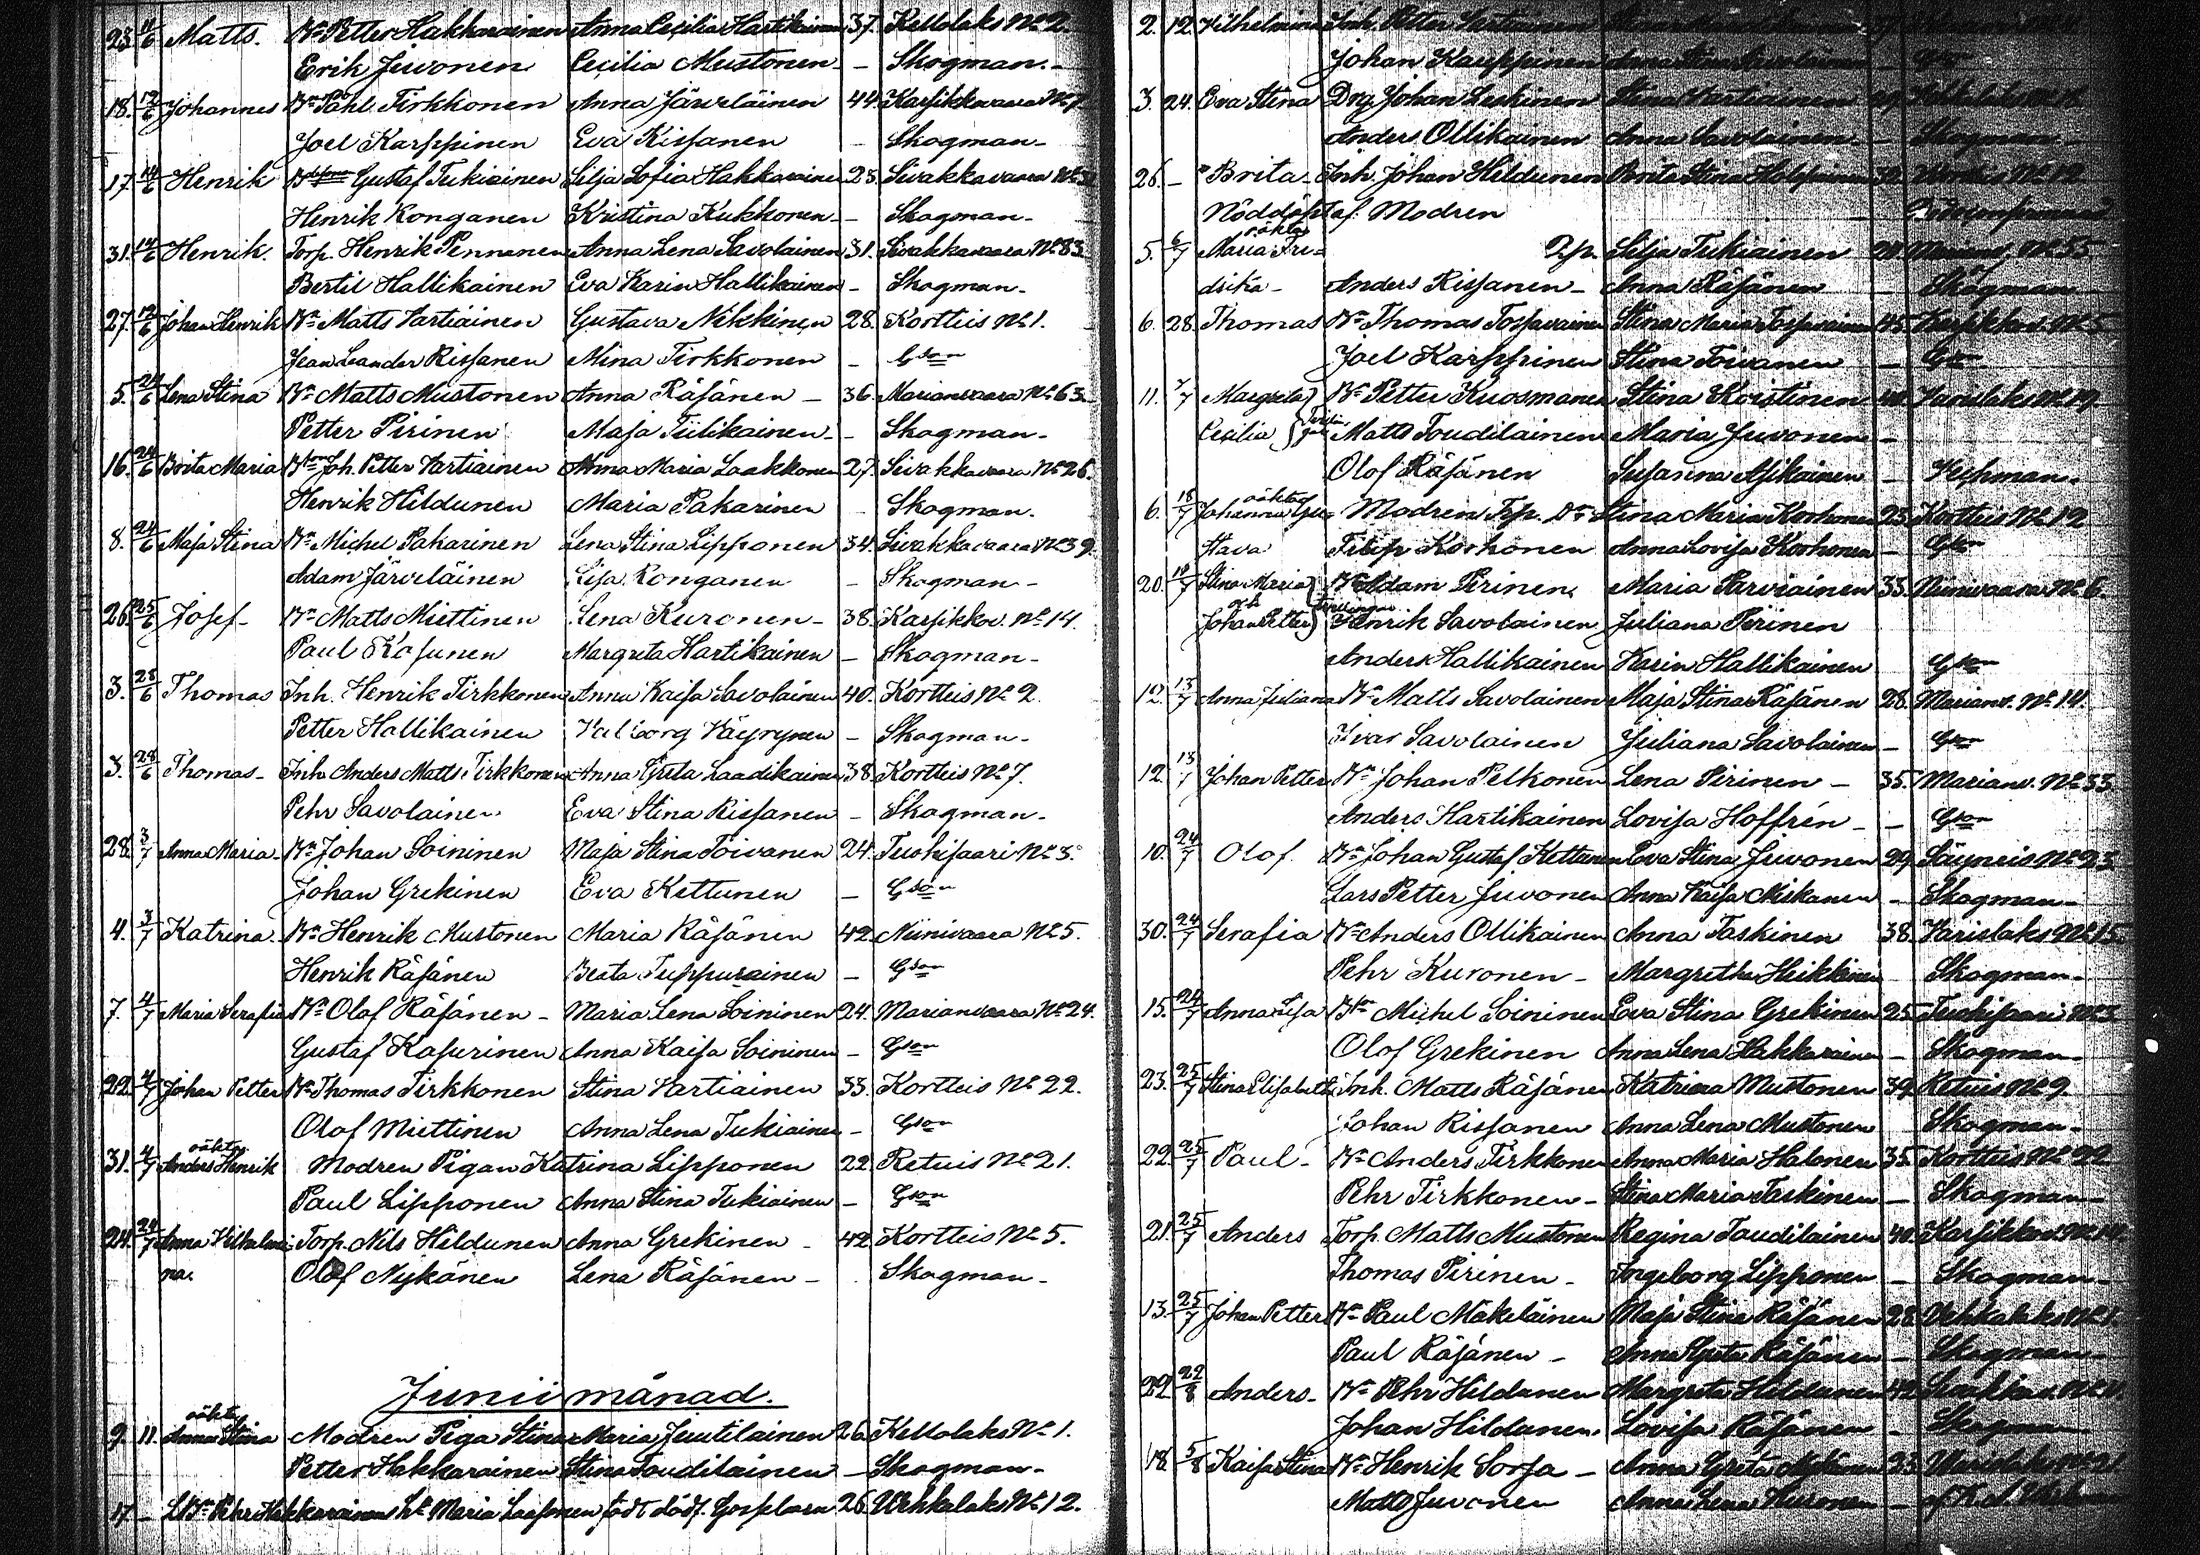 23. 11/6 Matts. Bn Petter Hakkarainen Anna Cecilia Hartikainen 37. Kellolaks No 2.
Erik Juvonen Cecilia Mustonen - - Skogman. -
18. 12/6 Johannes Bn Påhl Tirkkonen Anna Järveläinen 44. Karsikkovaara No 7
Joel Karppinen Eva Rissanen - Skogman -
17. 14/6 Henrik Gustaf Tukiainen Silja Sofia Hakkarainen 23. Sivakkavaara No
Henrik Ronganen Kristina Kukkonen - - Skogman -
31. 14/6 Henrik. Torp. Henrik Pennanen Anna Lena Savolainen 31. Sivakkavaara No 83
Bertil Hallikainen Eva Karin Hallikainen - Skogman -
27. 19/6 Johan Henrik Bn Matts Vartiainen Gustava Nikkinen 28. Kortteis No 1.
Jean Leander Rissanen Mina Tirkkonen - Gson
5. 24/6 Lena Stina Bn Matts Mustonen Anna Räsänen - 36. Marianvaara No 63
Petter Pirinen Maja Tiilikainen - - Skogman -
16. 24/6 Brita Maria Joh. Petter Vartiainen Anna Maria Laakkonen 27. Sivakkavaara No 26.
Henrik Hildunen Maria Pakarinen Skogman.
8. 24/6 Maja Stina Bn Michel Pakarinen Lena Stina Lipponen 34. Sivakkavaara No 39.
Adam Järveläinen Lisa Ronganen - Skogman -
26. 25/6 Josef - Bn Matts Miettinen Lena Kuronen - 38. Karsikkov. No 14.
Paul Kosunen Margreta Hartikainen - Skogman -
3. 28/6 Thomas Inh. Henrik Tirkkonen Anna Kaisa Savolainen 40. Kortteis No 2.
Petter Hallikainen Valborg Väyrynen - Skogman -
3. 28/6 Thomas - Inh Anders Matts. Tirkkonen Anna Greta Laadikainen 38. Kortteis No 7.
Pehr Savolainen Eva Stina Rissanen - Skogman -
28. 3/7 Anna Maria - Bn Johan Soininen Maja Stina Toivanen 24. Tuohisaari No 3.
Johan Grekinen Eva Kettunen - Gson
4. 3/7 Katrina. Bn Henrik Mustonen Maria Räsänen 42. Niinivaara No 5.
Henrik Räsänen Beata Tuppurainen - Gson
7. 4/7 Maria Serafia Bn Olof Räsänen - Maria Lena Soininen 24. Marianvaara No 24.
Gustaf Kasurinen Anna Kaisa Soininen - Gson
22. 4/7 Johan Petter Bn Thomas Tirkkonen Stina Vartiainen 33. Kortteis No 22.
Olof Miettinen Anna Lena Tukiainen - Gson
oäkta
31. 4/7 Anders Henrik Modren Pigan Katrina Lipponen 22. Retuis No 21.
Paul Lipponen Anna Stina Tukiainen - Gson
24. 24/7 Anna Vilhelmi- Torp. Nils Hildunen Anna Grekinen - 42 Kortteis No 5.
na. Olof Nykänen Lena Räsänen - Skogman -
Junii månad.
oäkta
9. 11. Anna Stina Modren Piga Stina Maria Juutilainen 26. Kellolaks No 1.
Petter Hakkarainen Stina Toudilainen - Skogman -
17 - Pehr Hakkarainen Maria Laasonen född död. 26. Vehkalaks No 12.
2. 12. Vilhelmina Inh. Petter
Johan Karppinen
3. 24. Eva Stina Drg Johan Leskinen Stina
Anders Ollikainen Anna Savolainen - Skogman -
26. - Brita - Inh. Johan Hildunen Brita Stina
Nöddöpt af Modren
oäkta
5. 6/7 Maria Fre- Silja Tukiainen Marianv. No 55
drika - Anders Rissanen - Anna Räsänen Skogman -
6. 28. Thomas Bn Thomas Tossavainen Stina Maria Tossavainen 45. Karsikkov. No 5
Joel Karppinen Stina Toivanen - Gson
11. 7/7 Margreta Bn Petter Kuosmanen Stina Koistinen Varislaks No 19
Cecilia Matts Toudilainen Maria Juvonen -
Olof Räsänen Susanna Asikainen - Vehman.
oäkta
6. 18/7 Johanna Gus- Modren Stina Maria Korhonen 23. Kortteis No 12
tava Filip Korhonen Anna Lovisa Korhonen - Gson
20. 19/7 Stina Maria Bn Adam Pirinen Maria Parviainen 33. Niinivaara No 6.
och Johan Petter Henrik Savolainen Juliana Pirinen
Anders Hallikainen Karin Hallikainen Gson
12. 13/7 Anna Juliana Bn Matts Savolainen Maja Stina Räsänen 28. Marianv. No 14.
Ivar Savolainen Juliana Savolainen - Gson
12. 13/7 Johan Petter Bn Johan Pelkonen Lena Pirinen - 35. Marianv. No 33
Anders Hartikainen Lovisa Hoffrén - - Gson
10. 24/7 Olof. Bn Johan Gustaf Kettunen Eva Stina Juvonen 29. Säyneis No 23
Lars Petter Juvonen Anna Kaisa Miskanen - Skogman -
30. 24/7 Serafia Bn Anders Ollikainen Anna Taskinen 38. Varislaks No 15
Pehr Kuronen - Margretha Heikkinen Skogman -
15. 24/7 Anna Lisa Michel Soininen Eva Stina Grekinen 25. Tuohisaari No 3
Olof Grekinen Anna Lena Hakkarainen - Skogman -
23. 25/7 Stina Elisabeth Inh. Matts Räsänen Katrina Mustonen 39. Retuis No 9.
Johan Rissanen Anna Lena Mustonen Skogman -
22. 25/7 Paul - Bn Anders Tirkkonen Anna Maria Halonen 35. Kortteis No 22
Pehr Tirkkonen - Stina Maria Taskinen - Skogman -
21. 25/7 Anders Torp. Matts Mustonen Regina Toudilainen 40. Karsikkov. No 14.
Thomas Pirinen - Ingeborg Lipponen - Skogman -
13. 25/7 Johan Petter Bn Paul Mäkeläinen Maja Stina Räsänen 28. Vehkalaks No 1.
Paul Räsänen - Anna Greta Räsänen - Skogman -
22. 22/8 Anders - Bn Pehr Hildunen Margreta Hildunen
Johan Hildunen. Lovisa Räsänen - Skogman
18. 5/8 Kaisa Stina Bn Henrik Sorsa - Anna Greta
Matts Juvonen Anna Lena